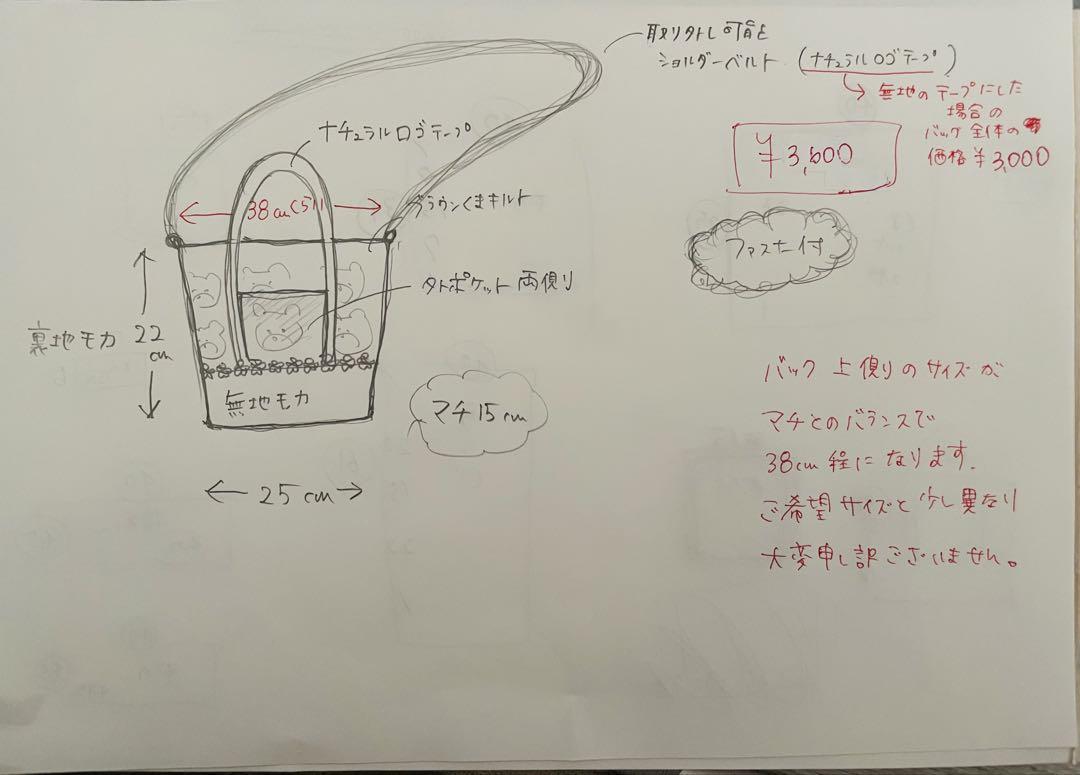 取り外し可能
ショルダーベルト (ナチュラルロゴテープ)
無地のテープにした
場合の
バック全体の
価格¥3,000
¥3,500
ファスナー付
ナチュラルロゴテープ
38cmくらい
ブラウンくまキルト
外ポケット両側り
裏地モカ
22
cm
無地モカ
マチ15cm
25cm
バック上側りのサイズが
マチとのバランスで
38cm程になります。
ご希望サイズと少し異なり
大変申し訳ございません。